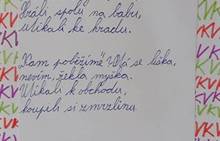 hráli spolu na babu,
utíkali ke hradu.
"Kam poběžíme" ptá se liška,
nevím, řekla myška.
Utíkali k obchodu,
koupili si zmrzlinu.